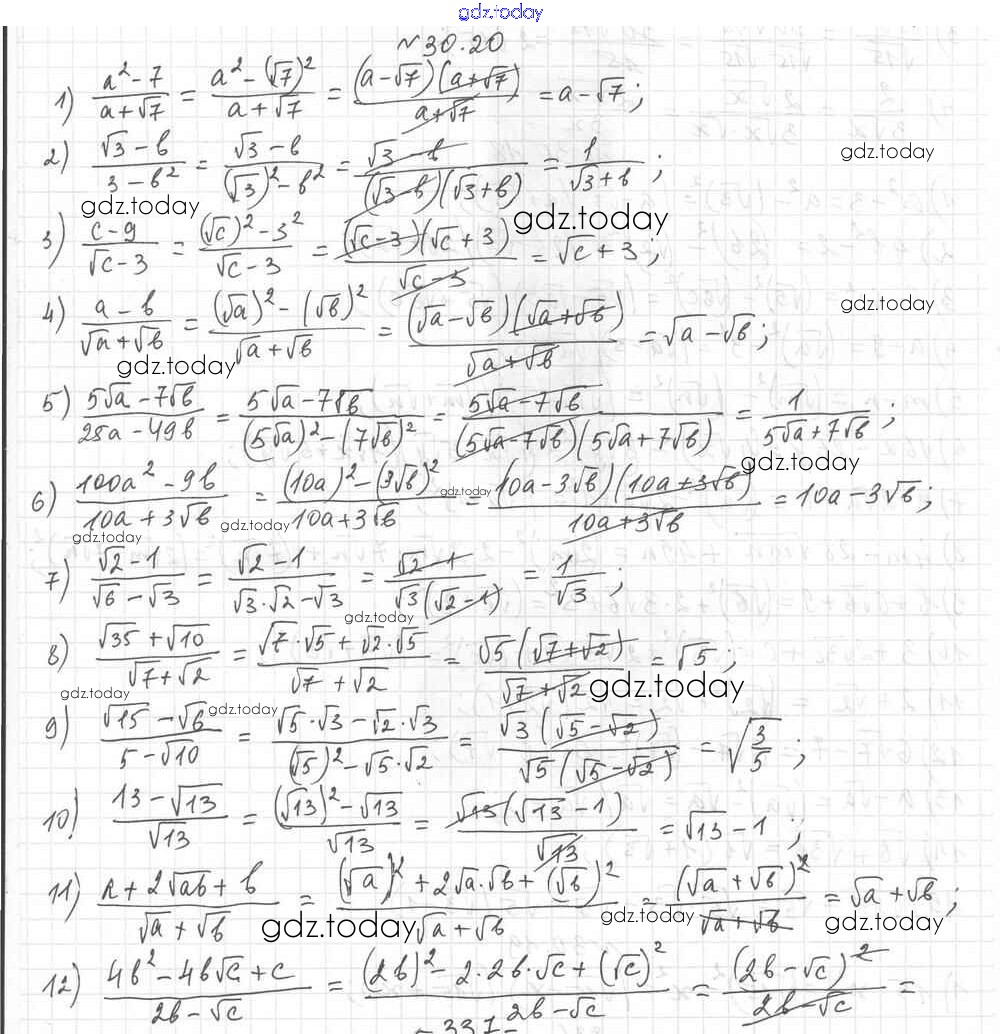 gdz.today
№30.20
1) (a² - 7)/(a + √7) = (a² - (√7)²)/(a + √7) = ((a - √7)(a + √7))/(a + √7) = a - √7;
2) (√3 - b)/(3 - b²) = (√3 - b)/((√3)² - b²) = (√3 - b)/((√3 - b)(√3 + b)) = 1/(√3 + b);
gdz.today
gdz.today
gdz.today
3) (c - 9)/(√c - 3) = ((√c)² - 3²)/(√c - 3) = ((√c - 3)(√c + 3))/(√c - 3) = √c + 3;
gdz.today
4) (a - b)/(√a + √b) = ((√a)² - (√b)²)/(√a + √b) = ((√a - √b)(√a + √b))/(√a + √b) = √a - √b;
gdz.today
5) (5√a - 7√b)/(25a - 49b) = (5√a - 7√b)/((5√a)² - (7√b)²) = (5√a - 7√b)/((5√a - 7√b)(5√a + 7√b)) = 1/(5√a + 7√b);
gdz.today
6) (100a² - 9b)/(10a + 3√b) = ((10a)² - (3√b)²)/(10a + 3√b) = ((10a - 3√b)(10a + 3√b))/(10a + 3√b) = 10a - 3√b;
gdz.today
gdz.today
gdz.today
7) (√2 - 1)/(√6 - √3) = (√2 - 1)/(√3·√2 - √3) = (√2 - 1)/(√3(√2 - 1)) = 1/√3;
gdz.today
8) (√35 + √10)/(√7 + √2) = (√7·√5 + √2·√5)/(√7 + √2) = (√5(√7 + √2))/(√7 + √2) = √5;
gdz.today
gdz.today
gdz.today
9) (√15 - √6)/(5 - √10) = (√5·√3 - √2·√3)/((√5)² - √5·√2) = (√3(√5 - √2))/(√5(√5 - √2)) = √(3/5);
10) (13 - √13)/√13 = ((√13)² - √13)/√13 = (√13(√13 - 1))/√13 = √13 - 1;
11) (a + 2√ab + b)/(√a + √b) = ((√a)² + 2√a·√b + (√b)²)/(√a + √b) = (√a + √b)²/(√a + √b) = √a + √b;
gdz.today
gdz.today
gdz.today
12) (4b² - 4b√c + c)/(2b - √c) = ((2b)² - 2·2b·√c + (√c)²)/(2b - √c) = (2b - √c)²/(2b - √c) =